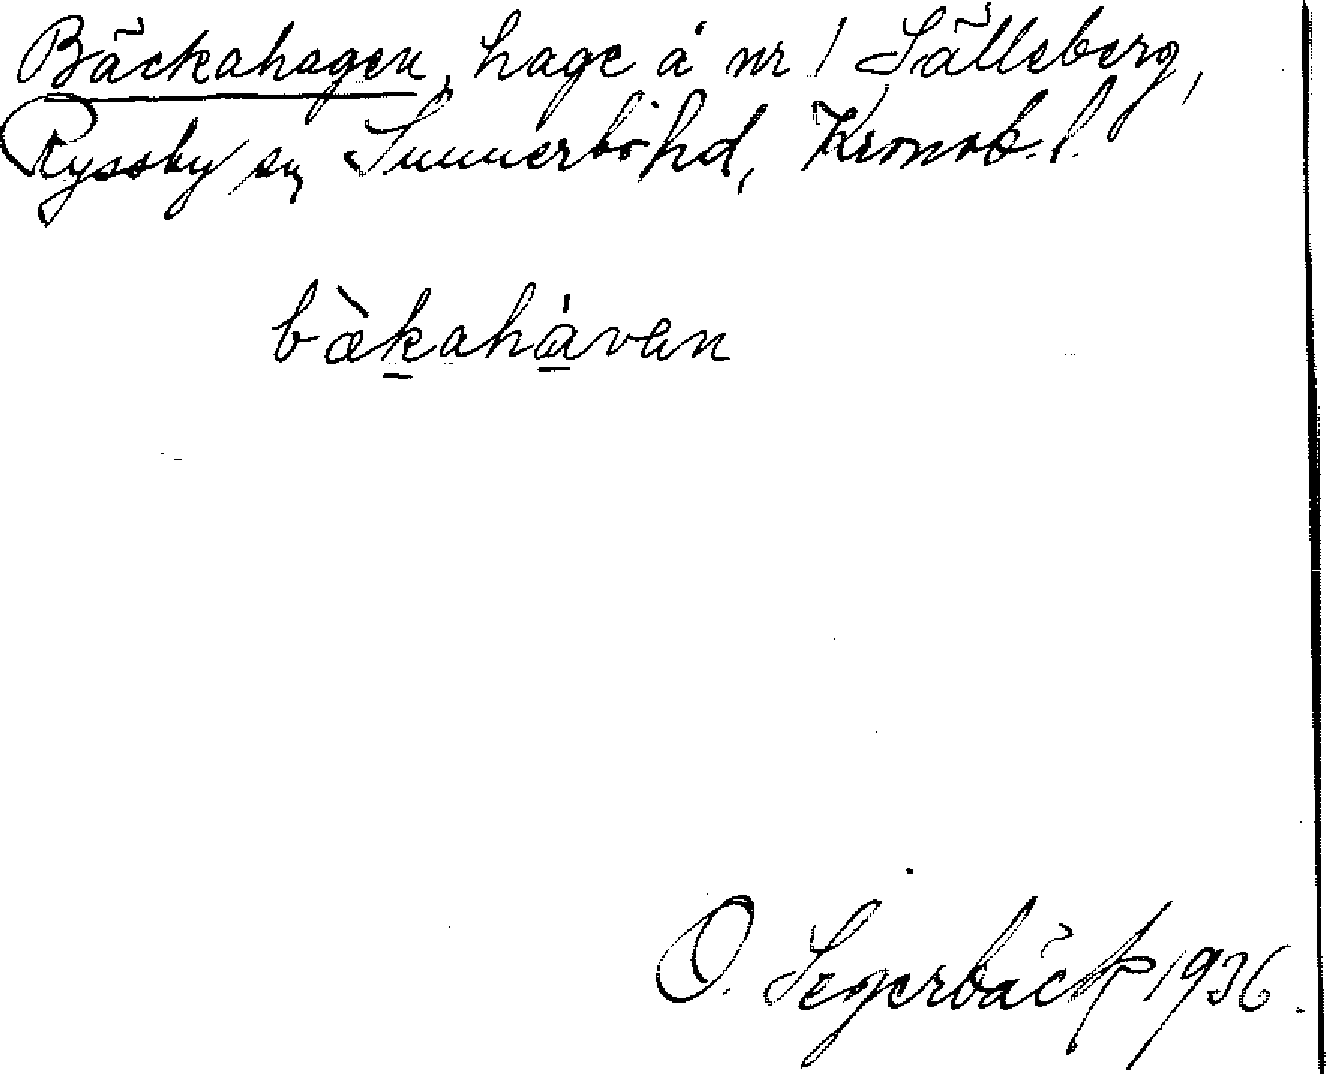 Bäckahagen, hage å nr 1 Sälleberg,
Ryssby sn, Sunnerbo hd, Kronob. l.
bæ̀kahàvan
O. Segerbäck 1936.